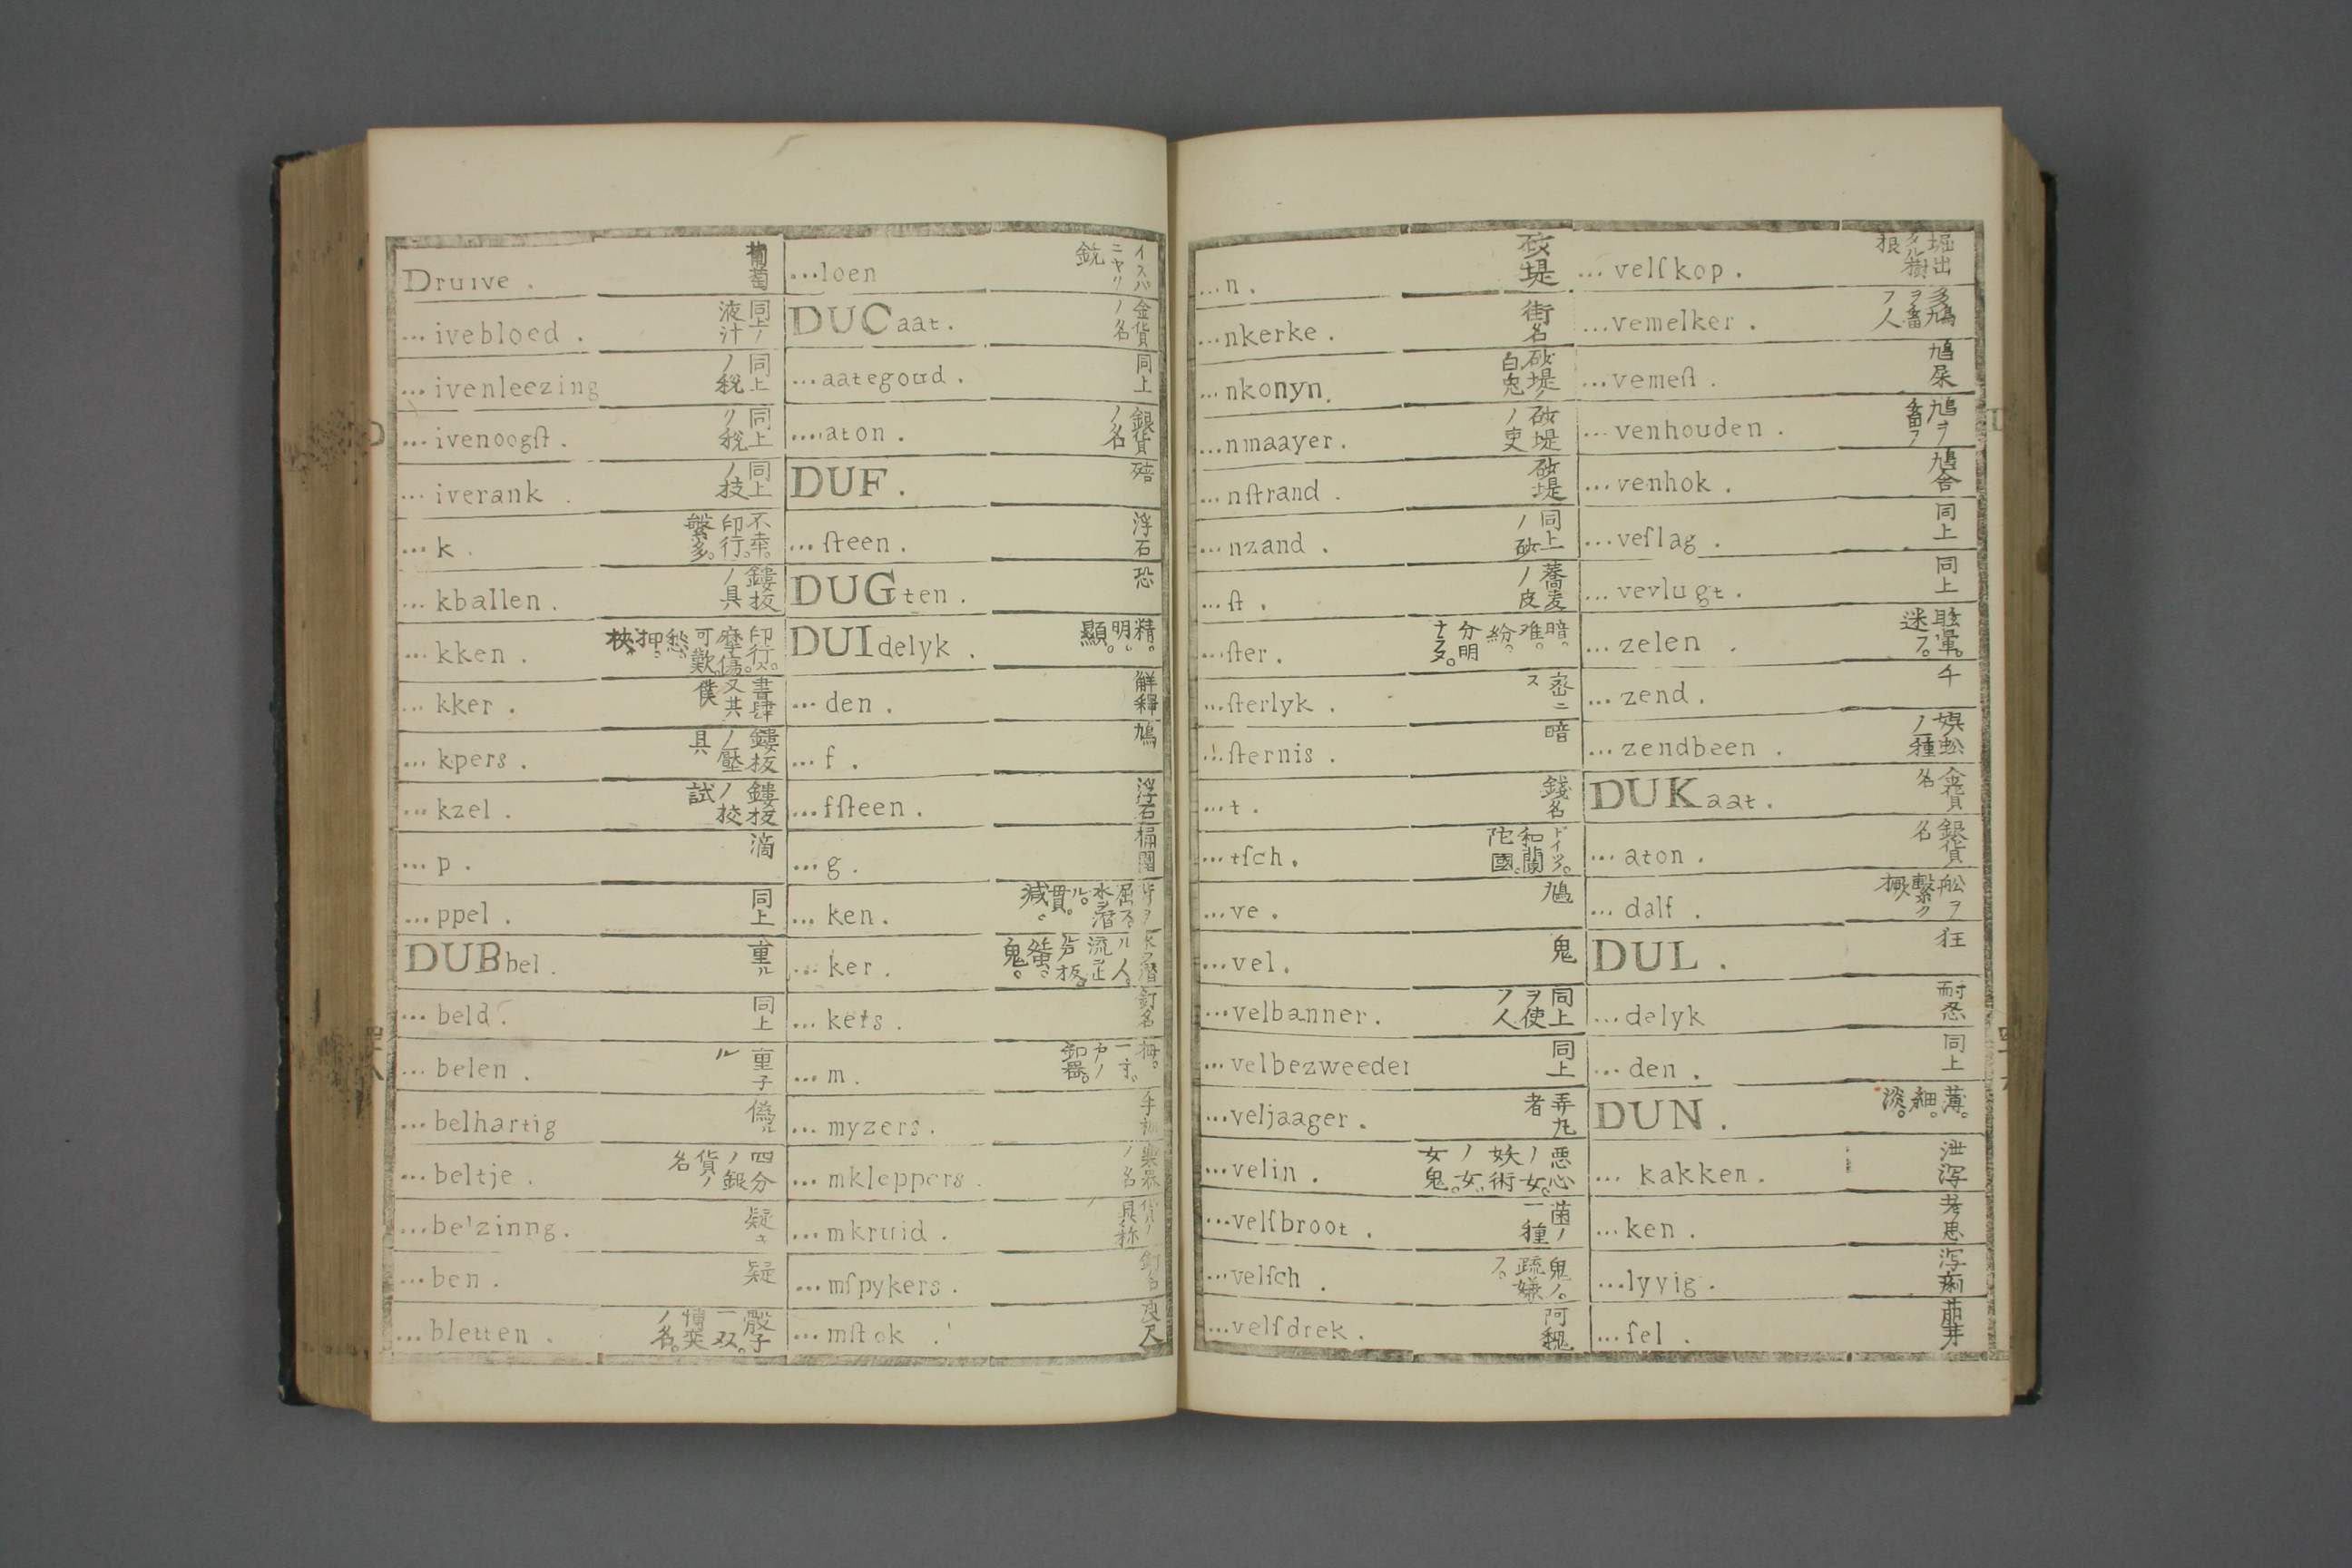 Druive . 葡萄
... ivebloed . 同上ノ液汁
... ivenleezing 同上ノ税
... ivenoogſt . 同上ノ税
... iverank . 同上ノ技
... k . 不幸。印行。繁多。
... kballen . 鏤板ノ具
... kken . 印行ス。摩傷。可歎。愁。押。挾。
... kker . 書肆又其僕
... kpers . 鏤板ノ壓具
... kzel . 鏤板ノ校試
... p . 滴
... ppel . 同上
DUBbel . 重ル
... beld . 同上
... belen . 重子ル
... belhartig 偽ル
... beltje . 四分ノ銀貨ノ名
... be'zinng . 疑キ
... ben . 疑
... bletten . 骰子一双。博奕ノ名。
... loen イスパニヤノ銃
DUCaat . 金貨ノ名
... aategoud . 同上
.... aton . 銀貨ノ名
DUF . 暗
... ſteen . 浮石
DUGten . 恐
DUIdelyk . 精。明。顯。
... den . 解釋
... f . 鳩
... fſteen . 浮石
... g . 桶
... ken . 屈スル。水ヲ潜ル。貫。減。
... ker . 水ヲ潜ル人。流ヲ止ル戸板。蛍。鬼。
... kets . 釘名
... m . 拇。一寸。
... myzers .
... mkleppers . 樂器ノ名
... mkruid .
... mſpykers . 釘名
... mſtok . 尺
... n . 砂堤
... nkerke . 街名
... nkonyn . 砂堤ノ白兎
... nmaayer . 砂堤ノ吏
... nſtrand . 砂堤
... nzand . 同上ノ砂
... ſt . 蕎麦ノ皮
... ſter . 暗。难。紛。分明ナラヌ。
... ſterlyk . 密ニス
... ſternis . 暗
... t . 錢名
... tſch . ドイツ。和蘭。陀國。
... ve . 鳩
... vel . 鬼
... velbanner . 同上ヲ使フ人
... velbezweeder 同上
... veljaager . 弄九者
... velin . 悪心ノ女。妖術ノ女。女鬼。
... velſbroot . 菌ノ一種
... velſch . 鬼ノ。疏嫌フ。
... velſdrek . 阿魏
... velſkop . 堀出タル樹根
... vemelker . 多鳩ヲ畜フ人
... vemeſt . 鳩屎
... venhouden . 鳩ヲ畜フ
... venhok . 鳩舎
... veſlag . 同上
... vevlugt . 同上
... zelen . 眩暈。迷フ。
... zend . 千
... zendbeen . 蜈蚣ノ種
DUKaat . 金貨名
... aton . 銀貨名
... dalf . 舩ヲ繋ク橛
DUL . 狂
... delyk 耐忍
... den . 同上
DUN . 薄。細。淡。
... kakken . 泄瀉
... ken . 考思
... lyyig . 瀉痢
... ſel . 萠芽